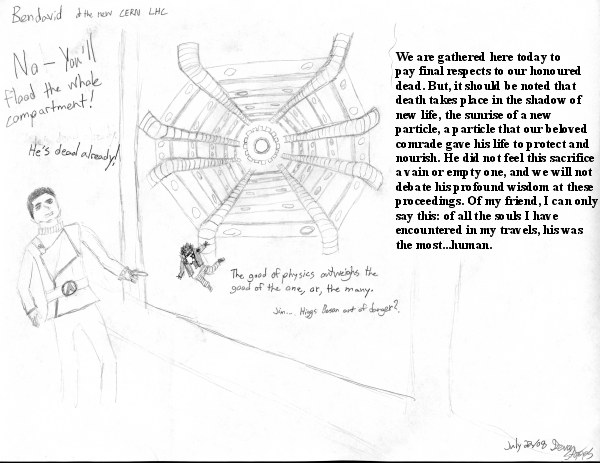 Bendavid at the new CERN LHC
No - You'll
flood the whole
compartment!
He's dead already!
We are gathered here today to
pay final respects to our honoured
dead. But, it should be noted that
death takes place in the shadow of
new life, the sunrise of a new
particle, a particle that our beloved
comrade gave his life to protect and
nourish. He did not feel this sacrifice
a vain or empty one, and we will not
debate his profound wisdom at these
proceedings. Of my friend, I can only
say this: of all the souls I have
encountered in my travels, his was
the most...human.
The good of physics outweighs the
good of the one, or, the many.
Jim... Higgs Boson out of danger?
July 28/08